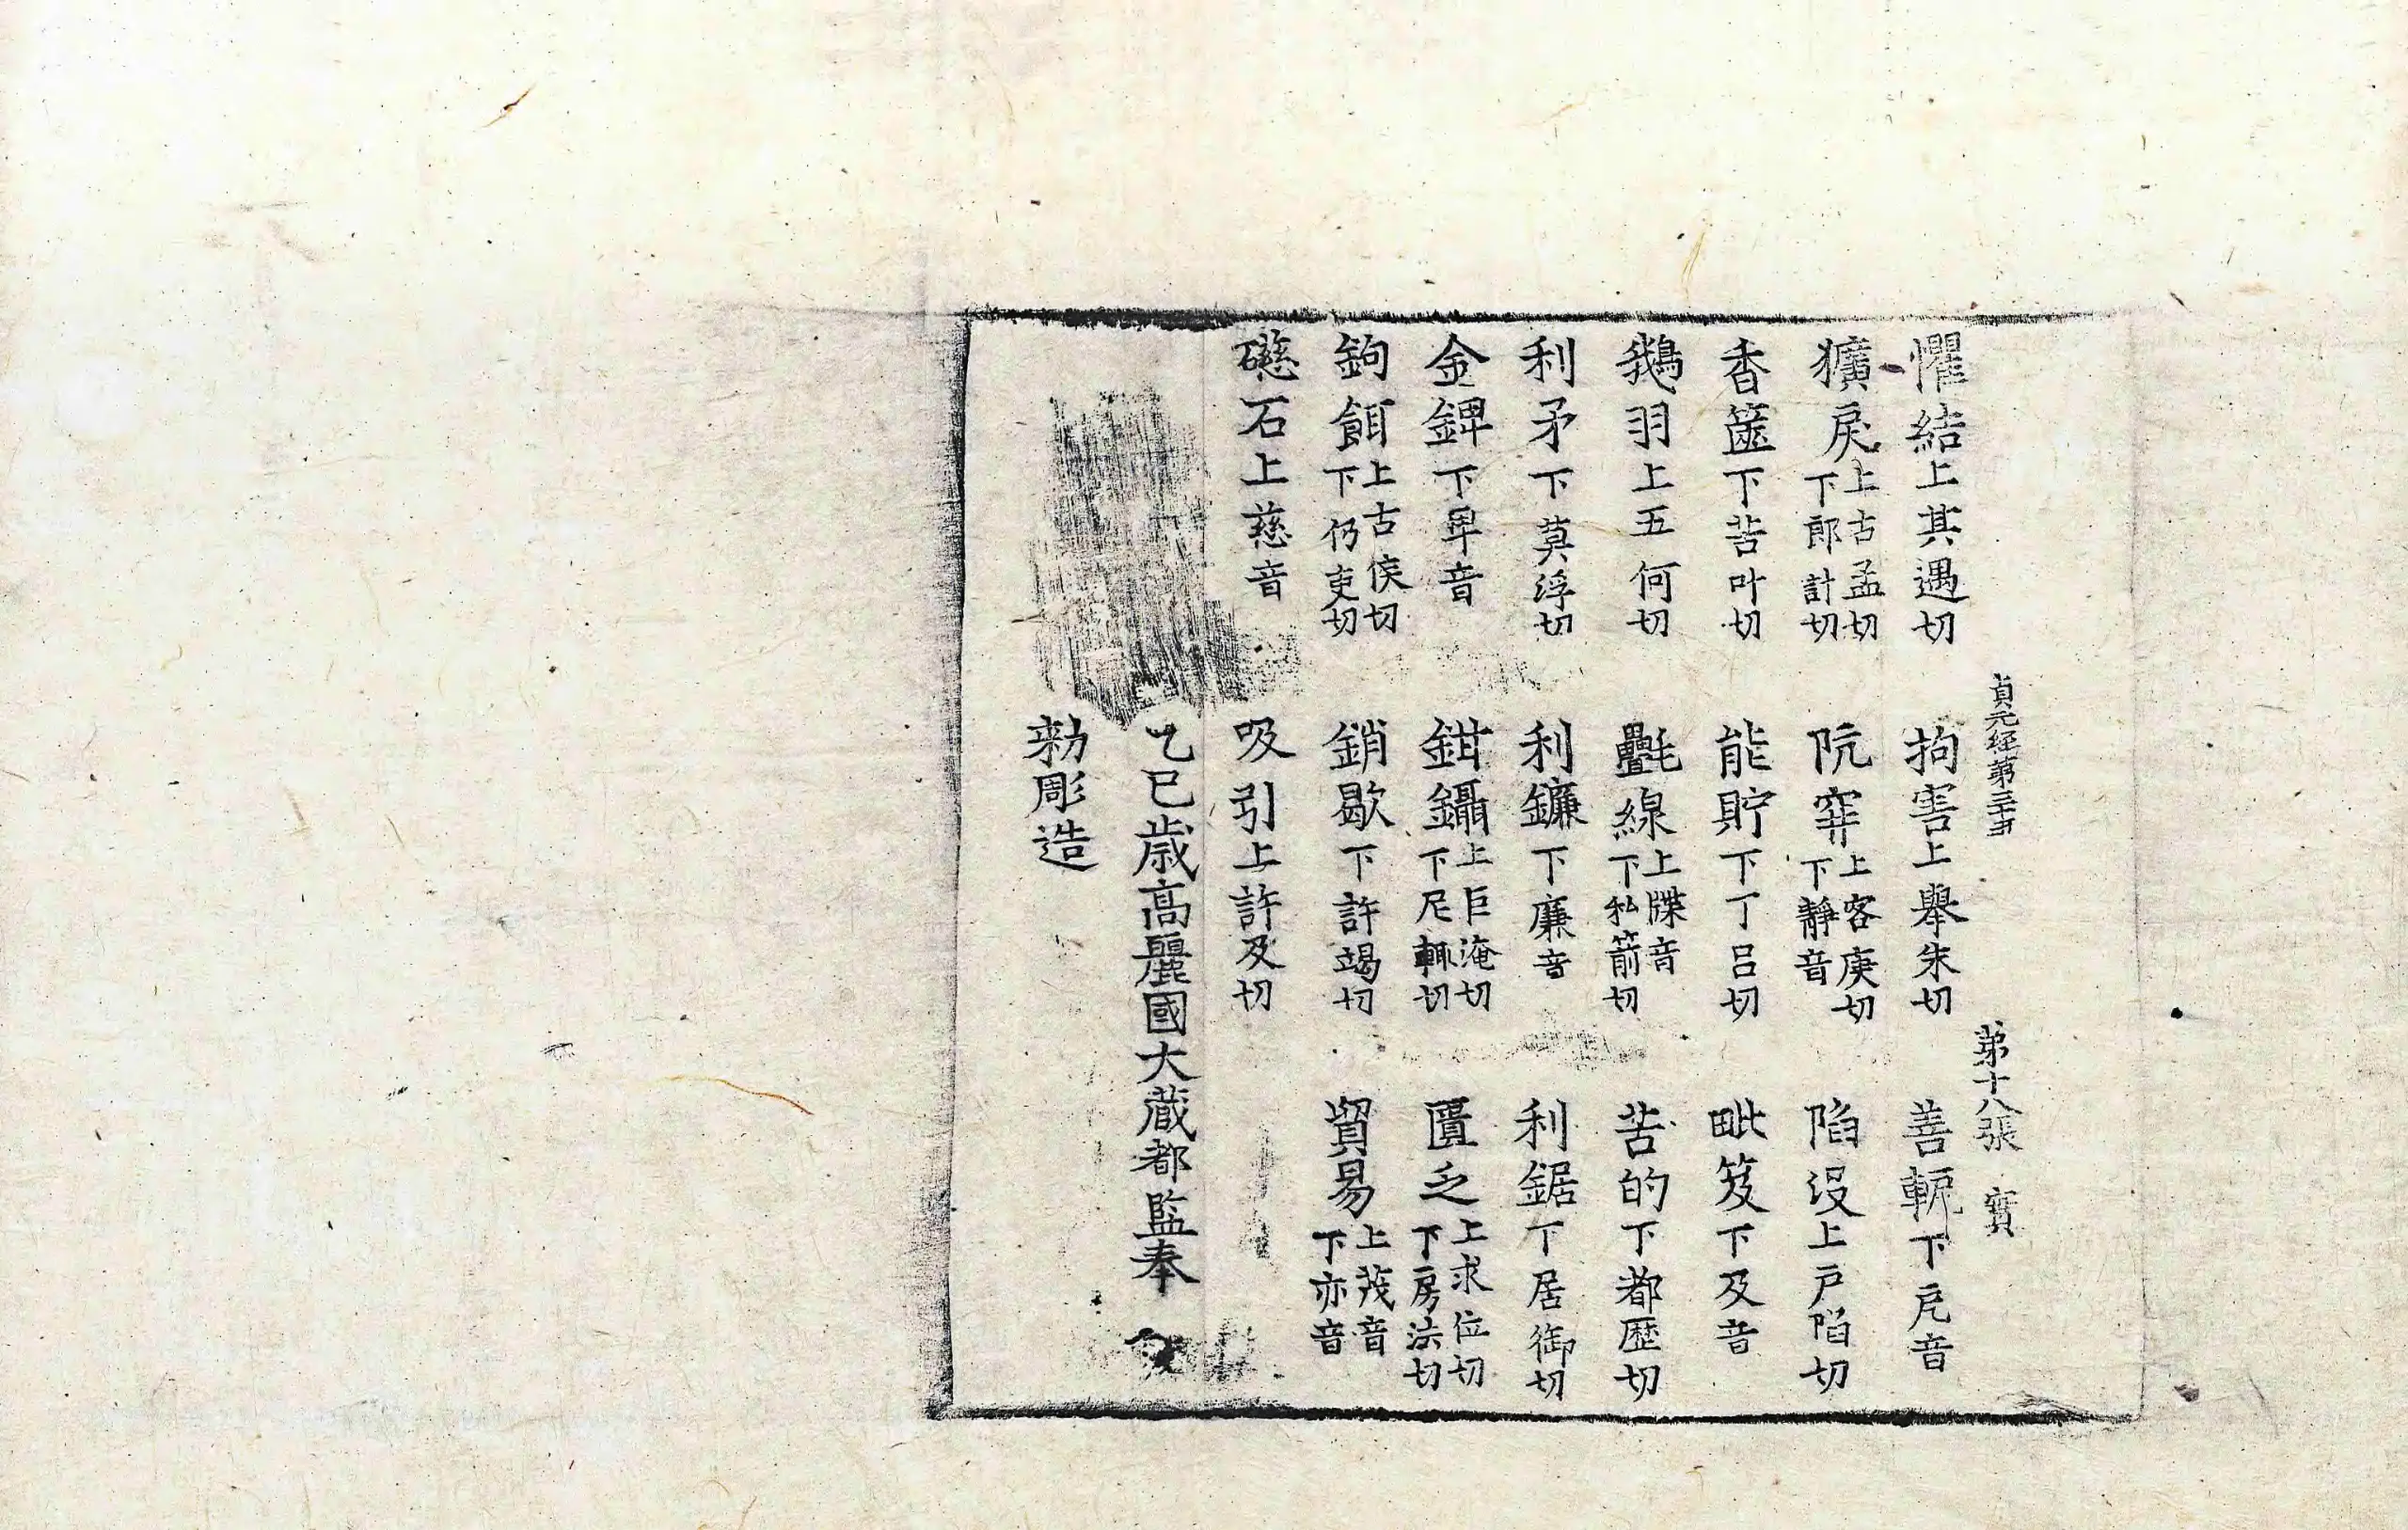 貞元経第三十五 第十八張 寳
懼結上其遇切 拘害上舉朱切 善軛下戹音
獷戾上古孟切下郎計切 阬穽上客庚切下靜音 陷沒上戸陷切
香篋下苦叶切 能貯下丁呂切 毗笈下及音
鵝羽上五何切 氎線上牒音下私箭切 苦的下都歷切
利矛下莫浮切 利鐮下廉音 利鋸下居御切
金錍下卑音 鉗鑷上巨淹切下尼輒切 匱乏上求位切下房法切
鉤餌上古侯切下仍吏切 銷歇下許竭切 貿易上茂音下亦音
礠石上慈音 吸引上許及切
乙巳歳高麗國大藏都監奉
勑彫造